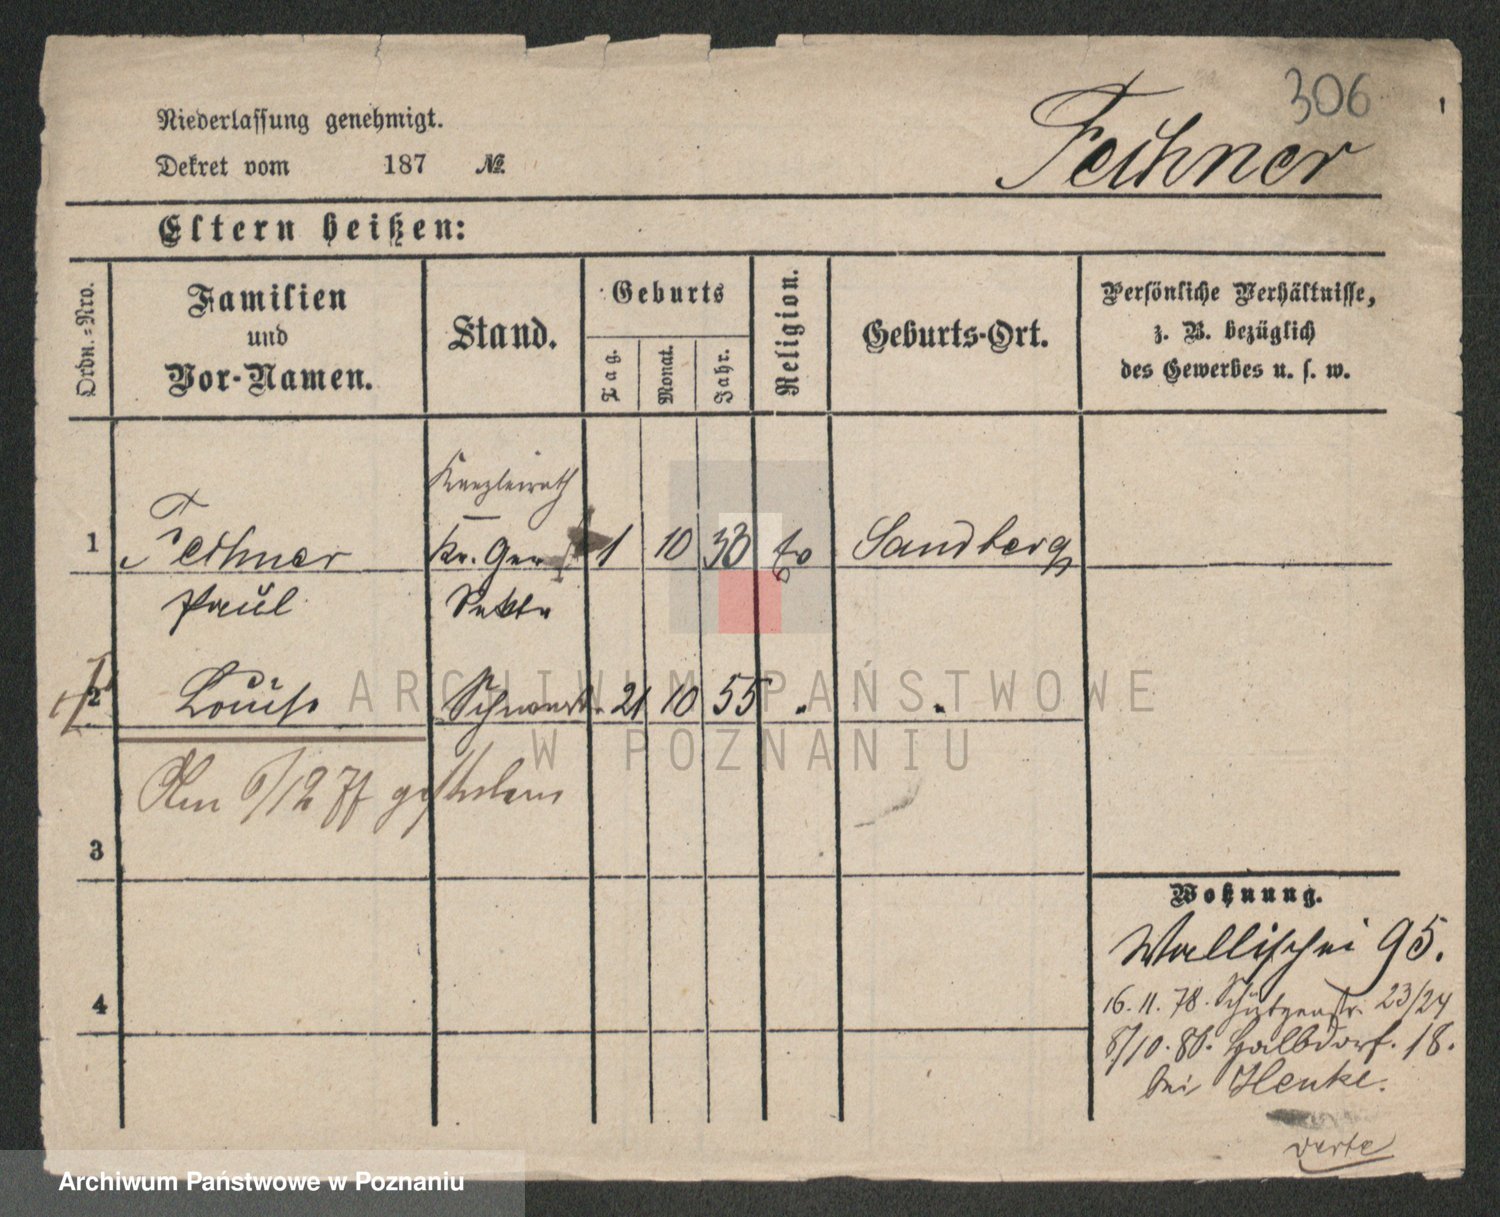 306
Niederlassung genehmigt.
Feihner
Dekret vom 187 №
Eltern heißen:
Ordn.=Nro.
Familien
und
Vor-Namen.
Stand.
Geburts
Tag.
Monat.
Jahr.
Religion.
Geburts-Ort.
Persönliche Verhältnisse,
z. B. bezüglich
des Gewerbes u. s. w.
Kanzleirath
1 Feihner Kr. Ger 1 10 30 Ev Sandberg
Paul
2 Louise 21 10 55 " "
Am 6/12 77 gestorben
3
4
Wohnung.
Wallischei 95.
16. 11. 78. Schützenstr. 23/24
8/10. 80. Halbdorf. 18.
bei Henke.
verte
ARCHIWUM PAŃSTWOWE
W POZNANIU
Archiwum Państwowe w Poznaniu